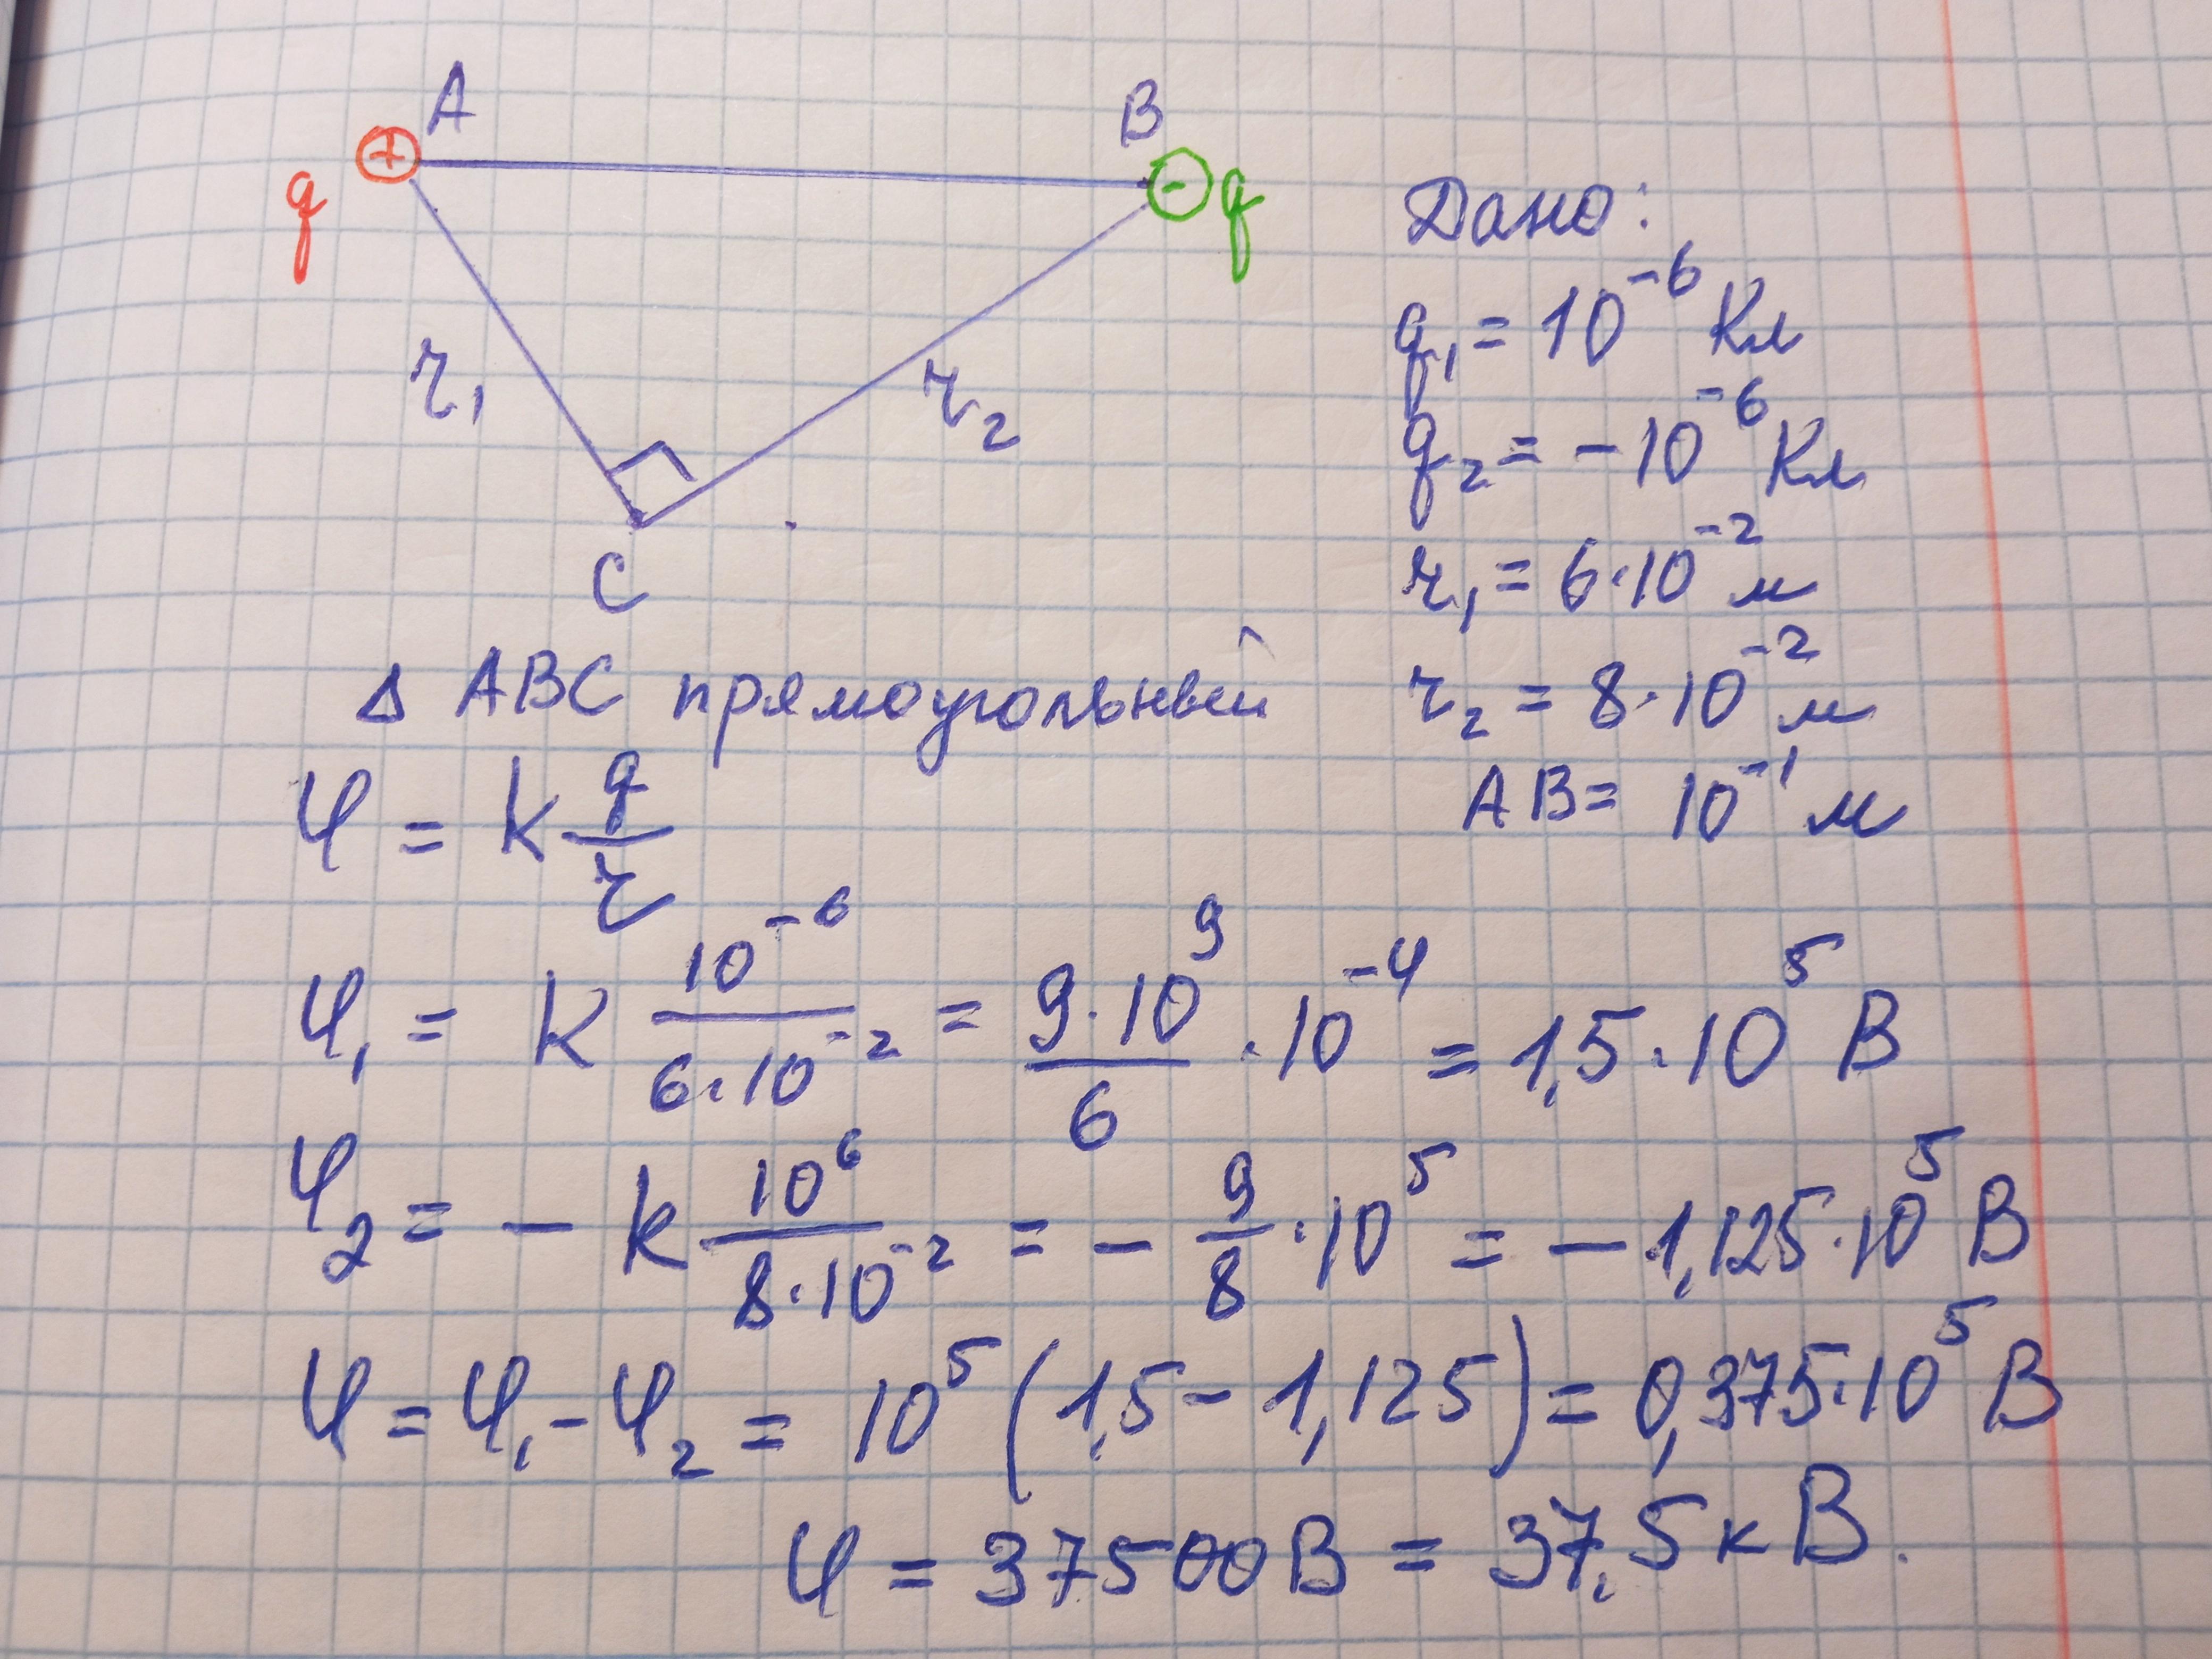 A
B
+
-
q
q
r₁
r₂
C
Дано:
q₁ = 10⁻⁶ Кл
q₂ = -10⁻⁶ Кл
r₁ = 6·10⁻² м
r₂ = 8·10⁻² м
AB = 10⁻¹ м
Δ ABC прямоугольный
φ = k q/r
φ₁ = k 10⁻⁶/(6·10⁻²) = 9·10⁹/6 · 10⁻⁴ = 1,5·10⁵ В
φ₂ = - k 10⁶/(8·10⁻²) = - 9/8 · 10⁵ = - 1,125·10⁵ В
φ = φ₁ - φ₂ = 10⁵ (1,5 - 1,125) = 0,375·10⁵ В
φ = 37500 В = 37,5 кВ.